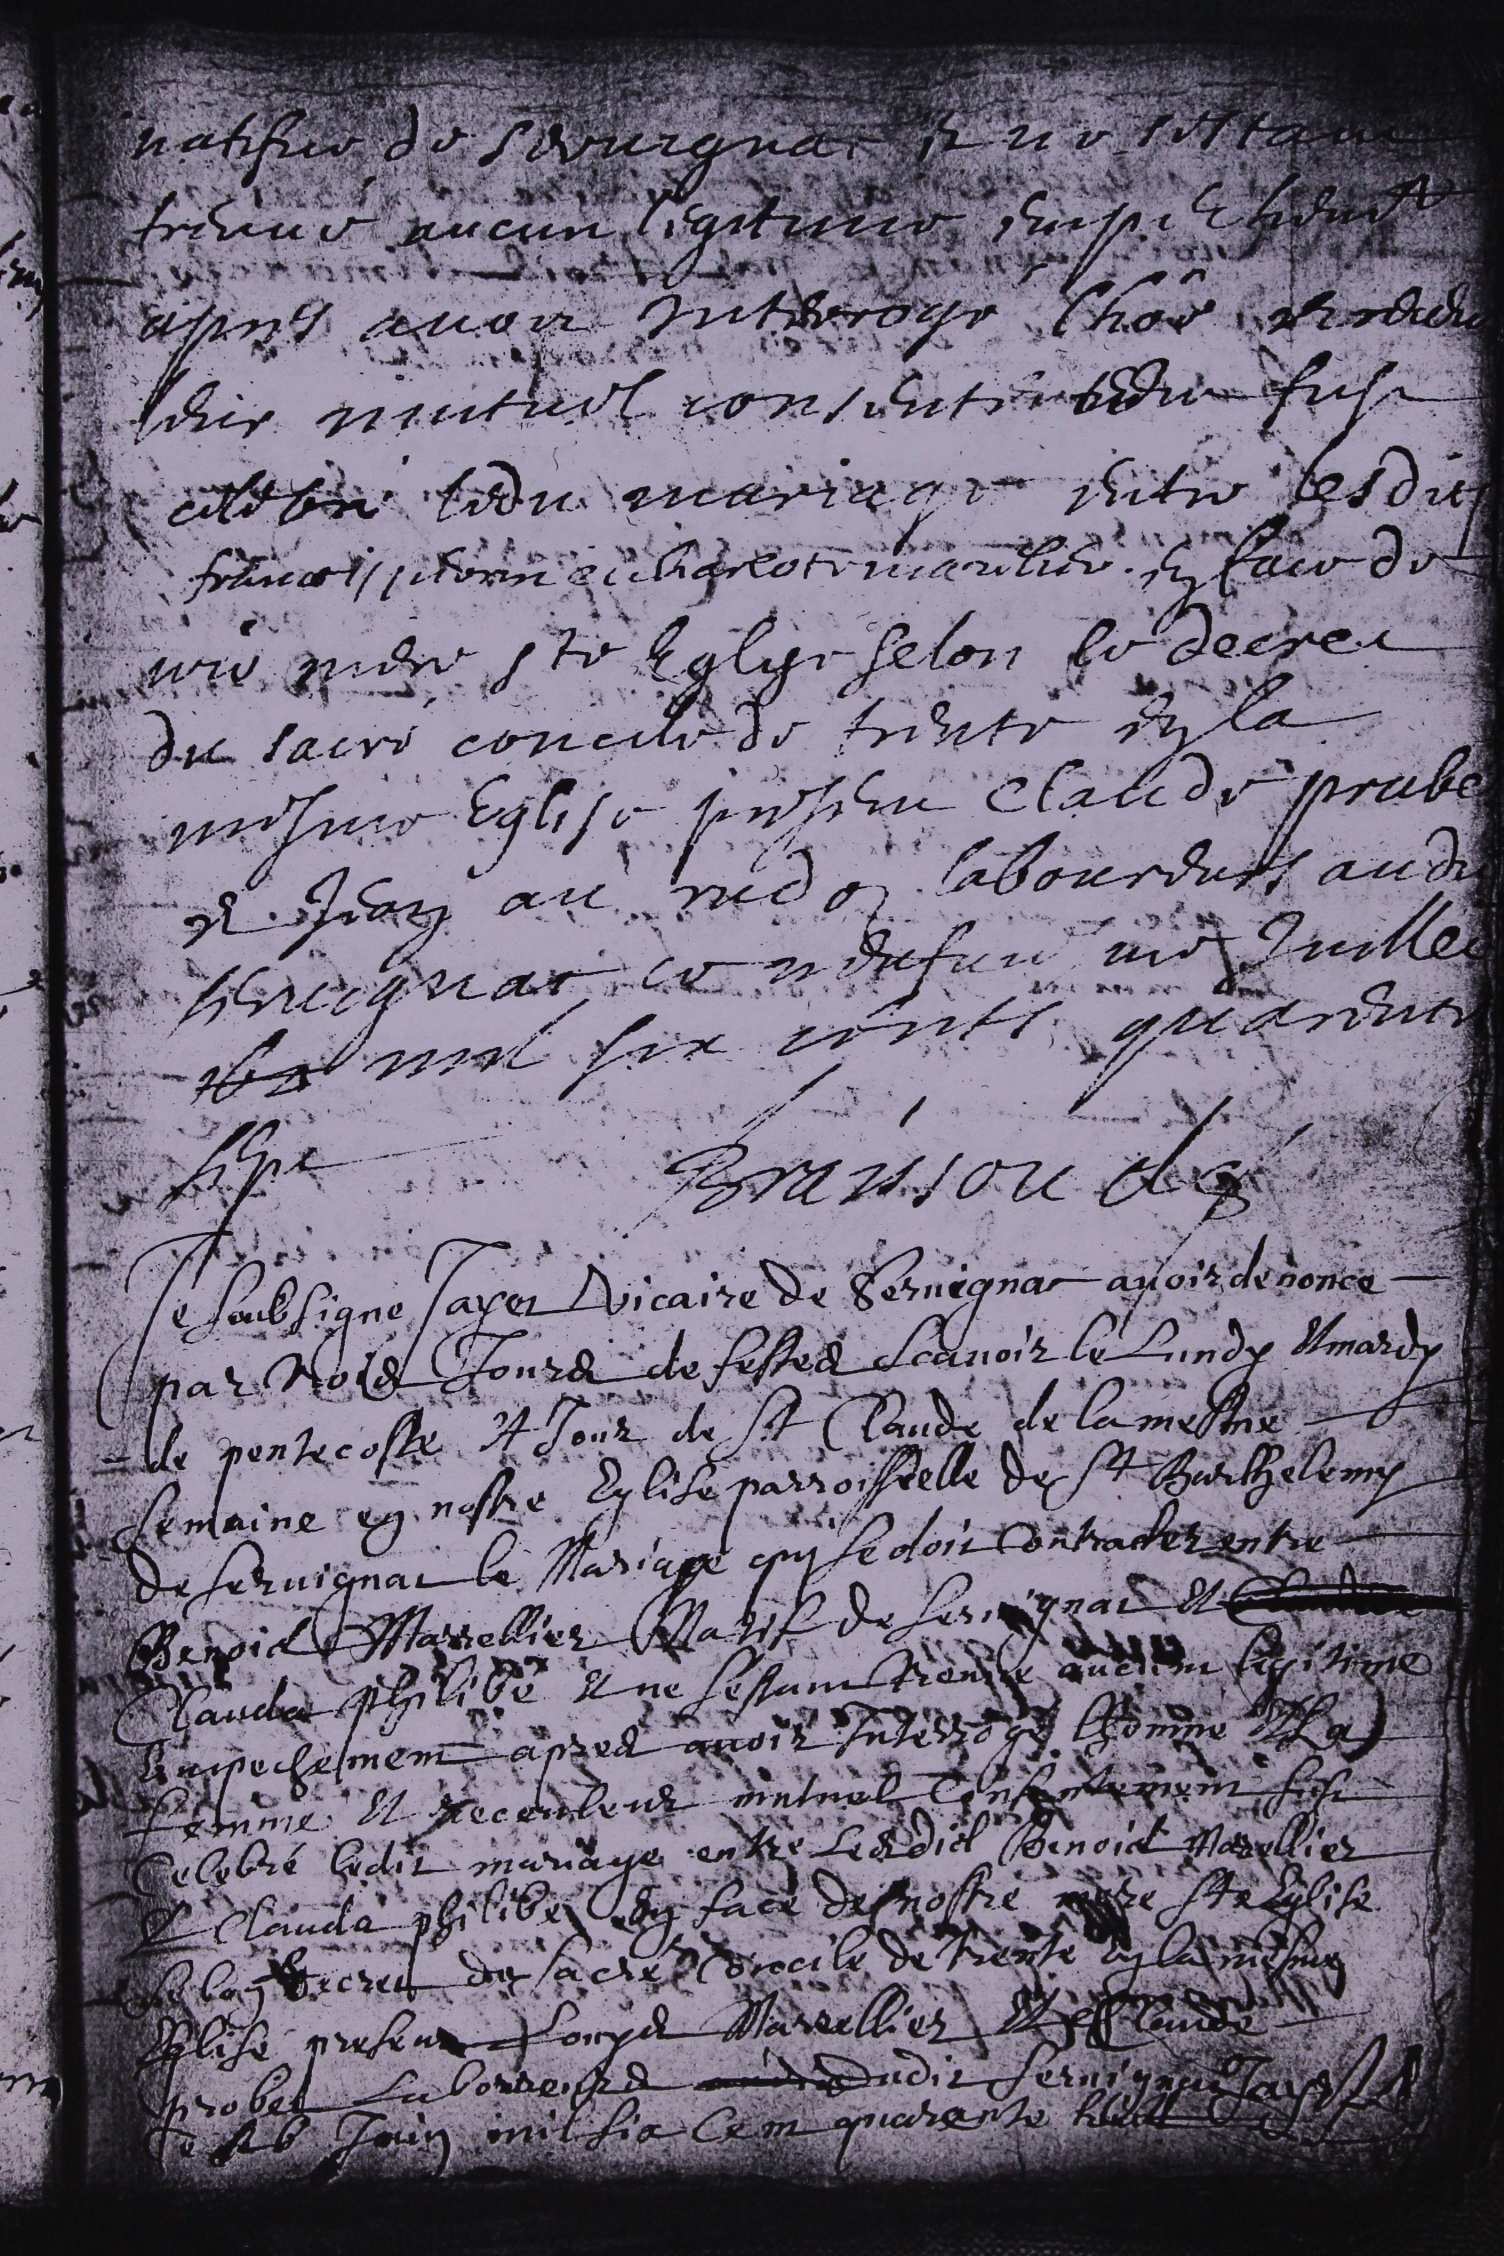 natifue de Seruigna et ne sestant
treuué aucun legitime empechemt
apres auoir Interroge lhoe
leur mutuel consentement fust
celebre ledit mariage entre lesdits
francois en face de
nre mere ste Eglyse selon le decret
du sacré concile de trente en la
mesme Eglise present Claude probe
et Jean laboureurs audit
Seruignat ce neufuie me Juillet
mil six cents quarente
sept
Je soubsigne Jayet vicaire de Seruignat auoir denonce
par trois Jours de festes scauoir le Lundy et mardy
de pentecoste et Jour de st Claude de la mesme
semaine en nostre Eglise parroissielle de st Barthelemy
de seruignat le Mariage qui se doit Contracter entre
Benoid Marellier Natif de seruignat et
Clauda philibe et ne sestant treuue aucum legitime
Empechement apres auoir Interroge lhomme et la
femme et receu leur mutuel Consentement fust
Celebré ledit mariage entre lesdict Benoid Marellier
et Clauda philibe en face de nostre mere ste Eglise
selon decret du sacré Concile de trente en la mesme
Eglise present Louys Marellier et Claude
probet Laboureurs dudit seruignat Jayet
Le Juin mil six Cent quarante huit